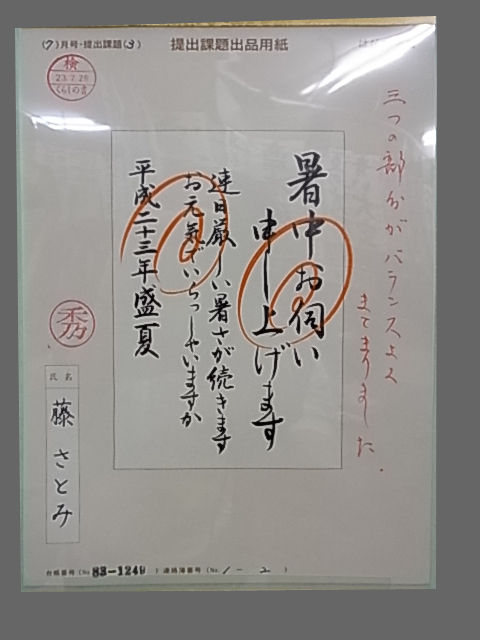 (7)月号・提出課題(3) 提出課題出品用紙
検
23.7.26
くらしの書
三つの部分がバランスよく
まとまりました.
暑中お伺い
申し上げます
連日厳しい暑さが続きます
お元気でいらっしゃいますか
平成二十三年盛夏
秀
氏名
藤 さとみ
台紙番号(No 83-1249 ) 連絡簿番号(No. 1-2 )